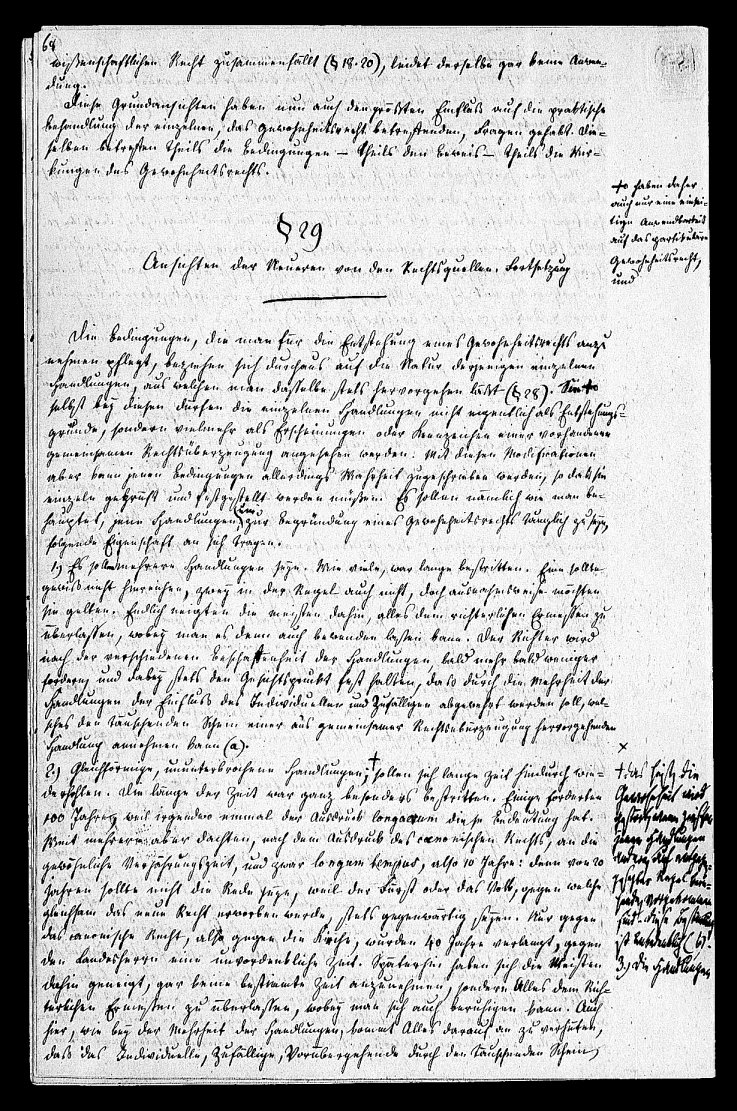 68
wissenschaftlichen Recht zusammenfällt (§ 18-20), leidet derselbe gar keine Anwen-
dung.
Diese Grundansichten haben nun auch den größten Einfluß auf die praktische
Behandlung der einzelnen, das Gewohnheitsrecht betreffenden, Fragen gehabt. Die-
selben betreffen theils die Bedingungen – theils den Beweis – theils die Wir-
kungen des Gewohnheitsrechts.
§ 29
Ansichten der Neueren von den Rechtsquellen. Fortsetzung
Die Bedingungen, die man für die Entstehung eines Gewohnheitsrechts anzu
nehmen pflegt, beziehen sich durchaus auf die Natur derjenigen einzelnen
Handlungen, aus welchen man dasselbe stets hervorgehen läßt (§ 28). Sie +
selbst bey diesen dürfen die einzelnen Handlungen nicht eigentlich als Entstehungs-
gründe, sondern vielmehr als Erscheinungen oder Kennzeichen einer vorhandenen
gemeinsamen Rechtsüberzeugung angesehen werden. Mit diesen Modificationen
aber kann jenen Bedingungen allerdings Wahrheit zugeschrieben werden, so daß sie
einzeln geprüft und festgestellt werden müßen. Es sollen nämlich wie man be-
hauptet, jene Handlungen, um zur Begründung eines Gewohnheitsrechts tauglich zu seyn,
folgende Eigenschaft an sich tragen.
1.) Es sollen mehrere Handlungen seyn. Wie viele, war lange bestritten. Eine sollte
gewiß nicht hinreichen, zwey in der Regel auch nicht, doch ausnahmsweise möchten
sie gelten. Endlich neigten die meisten dahin, alles dem richterlichen Ermessen zu
überlassen, wobey man es denn auch bewenden lassen kann. Der Richter wird
nach der verschiedenen Beschaffenheit der Handlungen, bald mehr bald weniger
fordern, und dabey stets den Gesichtspunkt fest halten, daß durch die Mehrheit der
Handlungen der Einfluß des Individuellen und Zufälligen abgewehrt werden soll, wel-
ches den täuschenden Schein einer aus gemeinsamer Rechtsüberzeugung hervorgehenden
Handlung annehmen kann (a).
2.) Gleichförmige, ununterbrochene Handlungen; + sollen sich lange Zeit hindurch wie-
derholen. Die Länge der Zeit war ganz besonders bestritten. Einige forderten
100 Jahre, weil irgendwo einmal der Ausdruck longaevum diese Bedeutung hat.
Weit mehrere aber dachten, nach dem Ausdruck des canonischen Rechts, an die
gewöhnliche Verjährungszeit, und zwar longum tempus, also 10 Jahre: denn von 20
Jahren sollte nicht die Rede seyn, weil der Fürst oder das Volk, gegen welche
gleichsam das neue Recht erworben werde, stets gegenwärtig seyen. Nur gegen
das canonische Recht, also gegen die Kirche, wurden 40 Jahre verlangt, gegen
den Landesherrn eine unvordenkliche Zeit. Späterhin haben sich die Meisten
dahin geneigt, gar keine bestimmte Zeit anzunehmen, sondern Alles dem Rich-
terlichen Ermessen zu überlassen, wobey man sich auch beruhigen kann. Auch
hier, wie bey der Mehrheit der Handlungen, kommt Alles darauf an zu verhüten,
daß das Individuelle, Zufällige, Vorübergehende durch den täuschenden Schein,
+ haben daher
auch nur eine einsei-
tige Anwendbarkeit
auf das partikuläre
Gewohnheitsrecht,
und
+ das heißt die
Gewohnheit wird
zwischen
jenen Handlungen
andere, auf entgegen-
gesetzter Regel beru-
hende, vorgekommen
sind.
ist (b).
3.) Die Handlungen